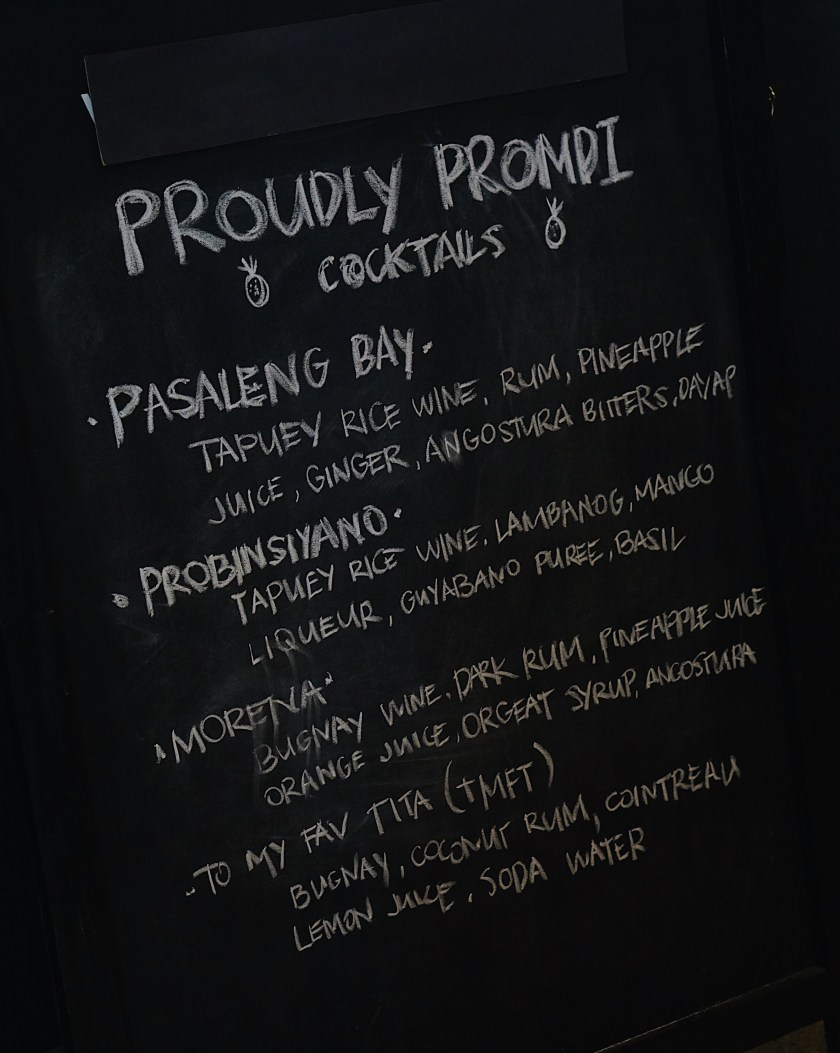 PROUDLY PROMDI
COCKTAILS
• PASALENG BAY •
TAPUEY RICE WINE, RUM, PINEAPPLE
JUICE, GINGER, ANGOSTURA BITTERS, DAYAP
• PROBINSIYANO •
TAPUEY RICE WINE, LAMBANOG, MANGO
LIQUEUR, GUYABANO PUREE, BASIL
• MORENA •
BUGNAY WINE, DARK RUM, PINEAPPLE JUICE
ORANGE JUICE, ORGEAT SYRUP, ANGOSTURA
• TO MY FAV TITA (TMFT)
BUGNAY, COCONUT RUM, COINTREAU
LEMON JUICE, SODA WATER